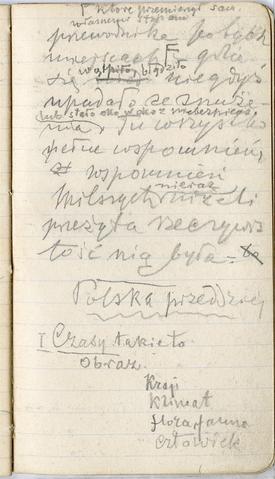 które przemierzył sam
własnemi stopami
przewodnika po tych
miejscach gdzie
się wątpiło, błądziło niegdyś
upadało ze znuże-
nia, Tu wszystko
pełne wspomnień,
wspomnień
milszych nieraz niżeli
przeżyta rzeczywis
tość nią była =
Polska przedziej
I Czasy takie to
Obraz.
Kraj
Klimat
flora fauna
człowiek